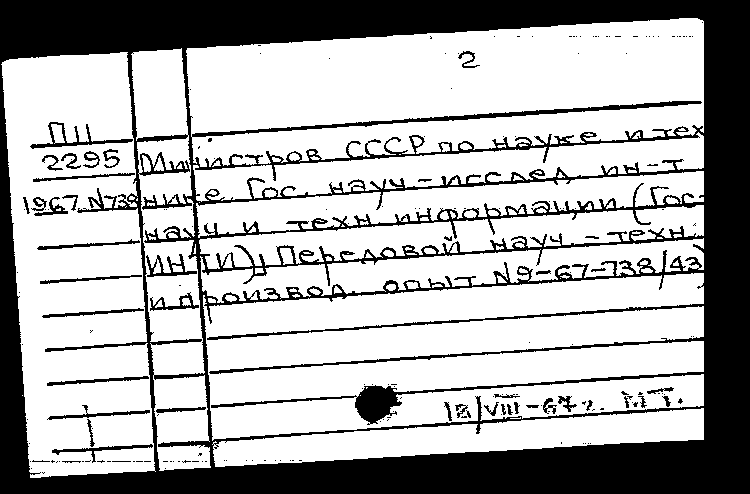 2
П11
2295 Министров СССР по науке и тех
1967 N738 нике. Гос. науч-исслед. ин-т
науч. и техн. информации. (Гос-
ИНТИ), Передовой науч.-техн.
и производ. опыт. N9-67-738/43)
18/VIII-67г. МТ.